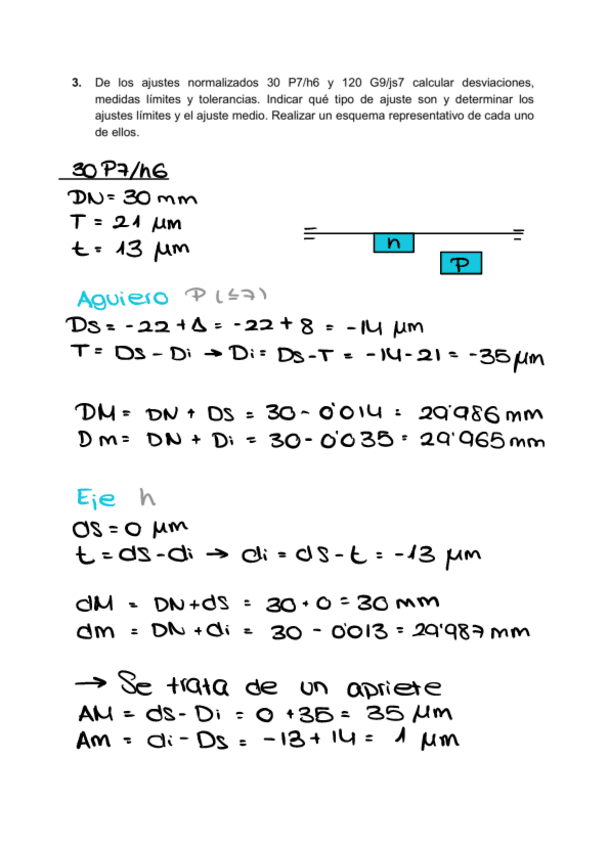 3. De los ajustes normalizados 30 P7/h6 y 120 G9/js7 calcular desviaciones,
medidas límites y tolerancias. Indicar qué tipo de ajuste son y determinar los
ajustes límites y el ajuste medio. Realizar un esquema representativo de cada uno
de ellos.
30 P7/h6
DN = 30 mm
T = 21 µm
t = 13 µm
h
P
Aguiero P (≤7)
Ds = -22 + Δ = -22 + 8 = -14 µm
T = Ds - Di → Di = Ds - T = -14 - 21 = -35 µm
DM = DN + DS = 30 - 0'014 = 29'986 mm
Dm = DN + Di = 30 - 0'035 = 29'965 mm
Eje h
ds = 0 µm
t = ds - di → di = ds - t = -13 µm
dM = DN + ds = 30 + 0 = 30 mm
dm = DN + di = 30 - 0'013 = 29'987 mm
→ Se trata de un apriete
AM = ds - Di = 0 + 35 = 35 µm
Am = di - Ds = -13 + 14 = 1 µm